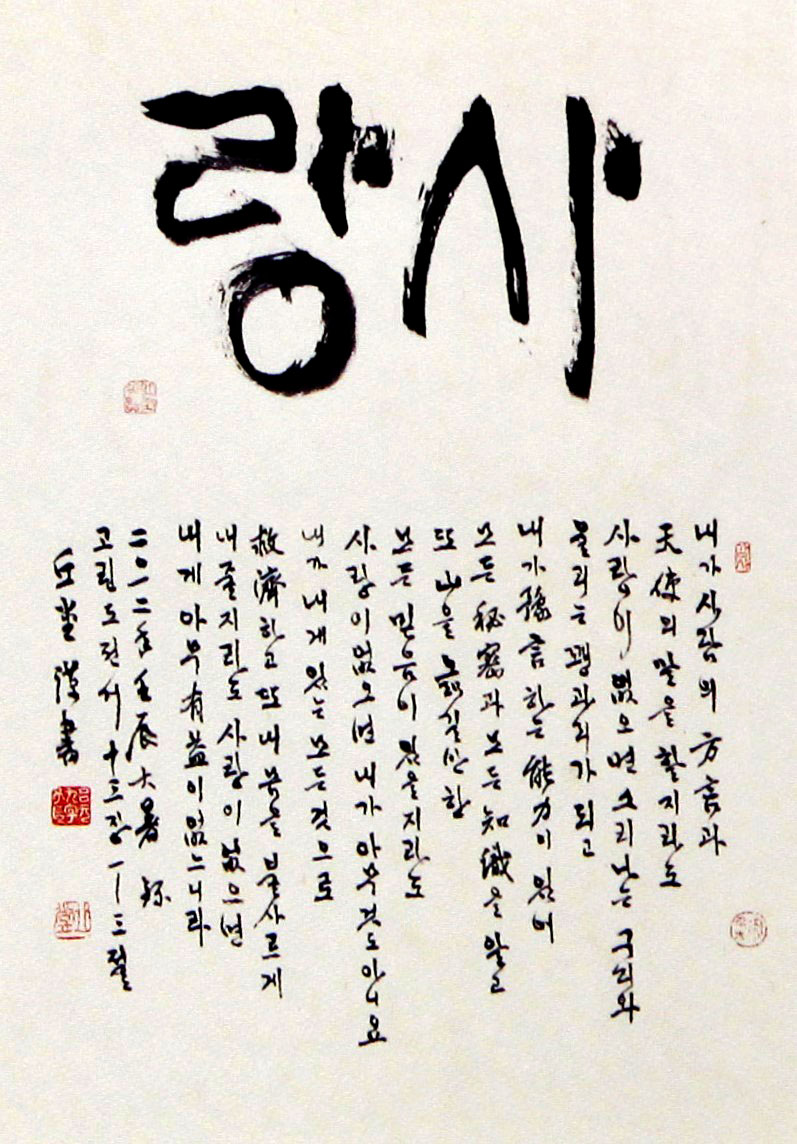 사랑
내가 사람의 方言과
天使의 말을 할지라도
사랑이 없으면 소리나는 구리와
울리는 꽹과리가 되고
내가 豫言하는 能力이 있어
모든 秘密과 모든 知識을 알고
또 山을 옮길만한
모든 믿음이 있을지라도
사랑이 없으면 내가 아무것도 아니요
내가 내게 있는 모든것으로
救濟하고 또 내 몸을 불사르게
내줄지라도 사랑이 없으면
내게 아무 有益이 없느니라
二〇一二年 壬辰 大暑
고린도전서 十三장 一 — 三절
丘堂 書